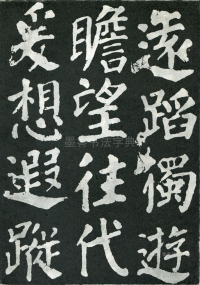 遠蹈獨遊
瞻望往代
爰想遐蹤
墨言书法字典